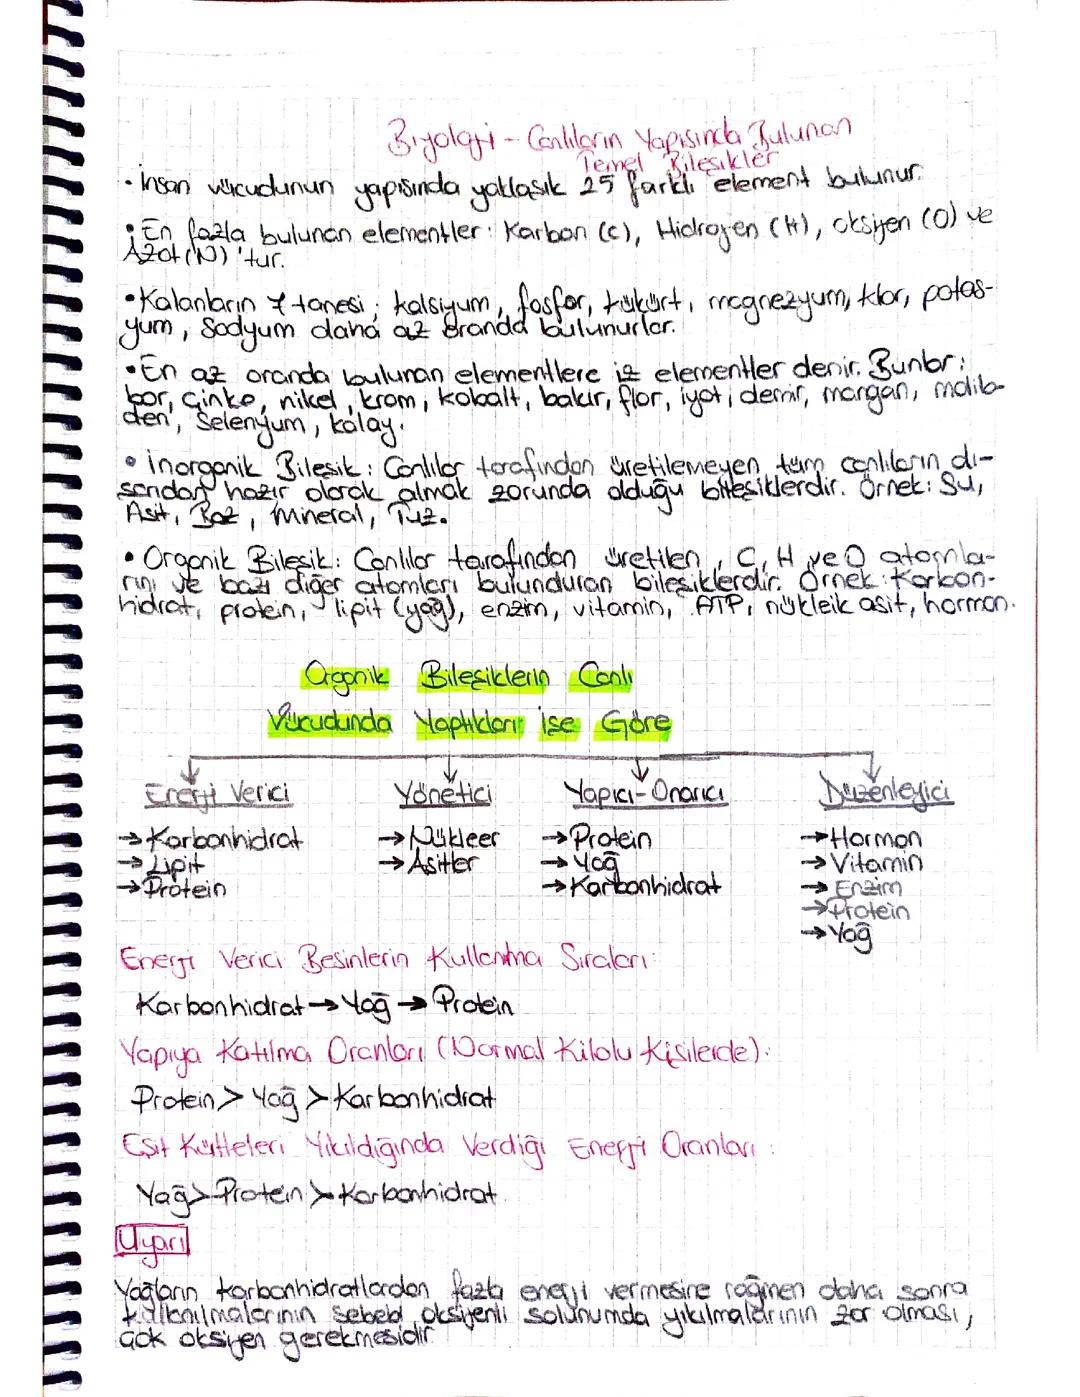 Biyoloji - Canlıların Yapısında Bulunan
Temel Bileşikler
• İnsan vücudunun yapısında yaklaşık 25 farklı element bulunur.
• En fazla bulunan elementler: Karbon (C), Hidrojen (H), oksijen (O) ve
Azot (N) 'tur.
• Kalanların 7 tanesi; kalsiyum, fosfor, kükürt, magnezyum, klor, potas-
yum, Sodyum daha az oranda bulunurlar.
• En az oranda bulunan elementlere iz elementler denir. Bunlar:
bor, Çinko, nikel, krom, kobalt, bakır, flor, iyot, demir, mangan, molib-
den, Selenyum, kalay.
• İnorganik Bileşik: Canlılar tarafından üretilemeyen, tüm canlıların dı-
şarıdan hazır olarak almak zorunda olduğu bileşiklerdir. Örnek: Su,
Asit, Baz, Mineral, Tuz.
• Organik Bileşik: Canlılar tarafından üretilen, C, H ve O atomla-
rını ve bazı diğer atomları bulunduran bileşiklerdir. Örnek: Karbon-
hidrat, protein, lipit (yağ), enzim, vitamin, ATP, nükleik asit, hormon.
Organik Bileşiklerin Canlı
Vücudunda Yaptıkları İşe Göre
Enerji Verici Yönetici Yapıcı-Onarıcı Düzenleyici
→ Karbonhidrat → Nükleer → Protein → Hormon
→ Lipit → Asitler → Yağ → Vitamin
→ Protein → Karbonhidrat → Enzim
→ Protein
→ Yağ
Enerji Verici Besinlerin Kullanılma Sıraları:
Karbonhidrat → Yağ → Protein
Yapıya Katılma Oranları (Normal Kilolu Kişilerde):
Protein > Yağ > Karbonhidrat
Eşit Kütleleri Yıkıldığında Verdiği Enerji Oranları:
Yağ > Protein > Karbonhidrat
Uyarı
Yağların karbonhidratlardan fazla enerji vermesine rağmen daha sonra
kullanılmalarının sebebi oksijenli solunumda yıkılmalarının zor olması,
çok oksijen gerekmesidir